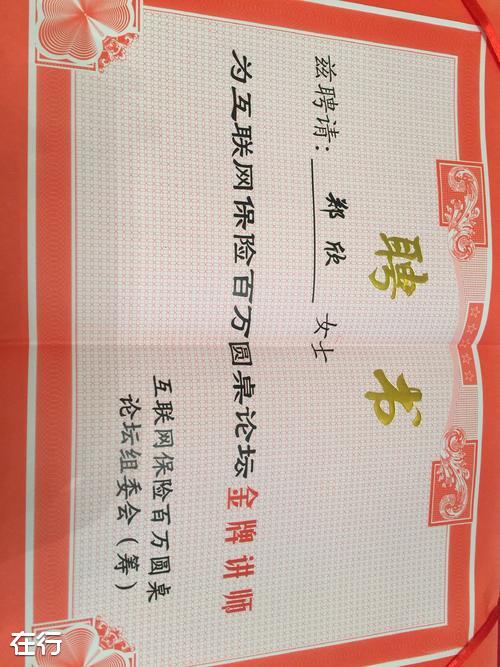 聘书
兹聘请：郑欣 女士
为互联网保险百万圆桌论坛金牌讲师
互联网保险百万圆桌
论坛组委会（筹）
在行